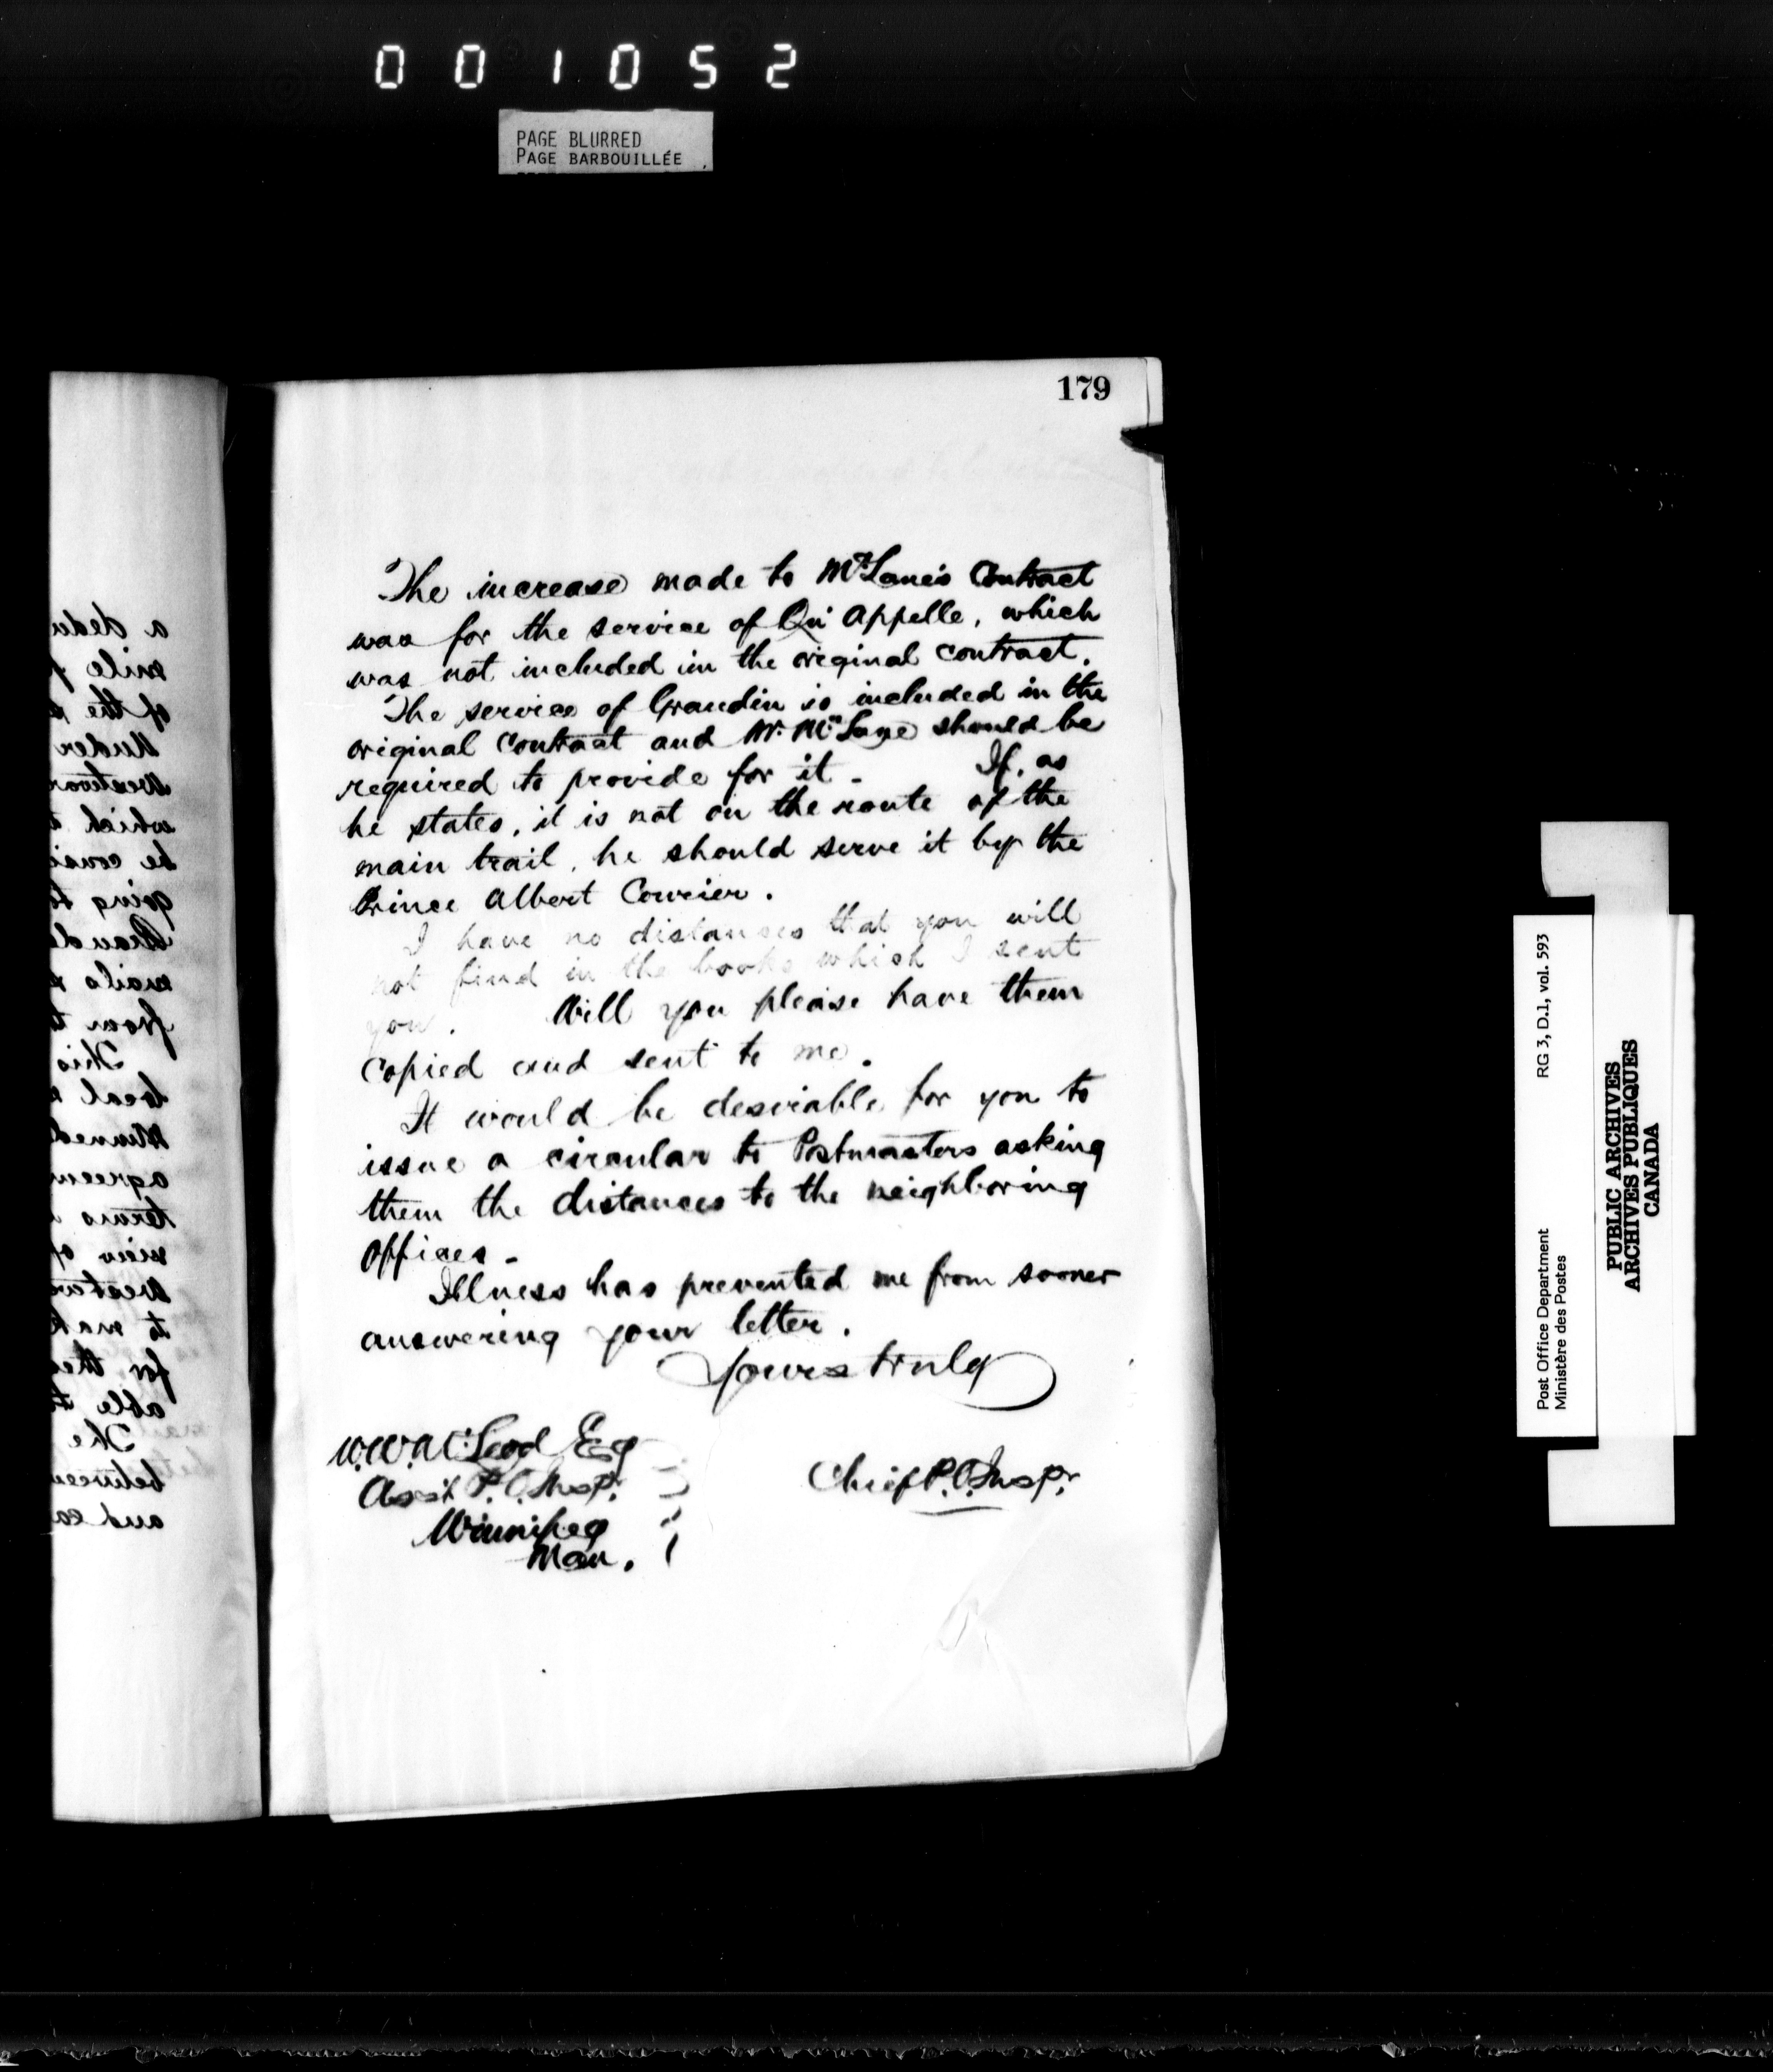 001052
PAGE BLURRED
PAGE BARBOUILLÉE
179
The increase made to McLane's Contract
was for the service of Qu'Appelle, which
was not included in the original contract.
The service of Grandin is included in the
original Contract and Mr. McLane should be
required to provide for it - If, as
he states, it is not on the route of the
main trail, he should serve it by the
Prince Albert Courier.
I have no distances that you will
not find in the books which I sent
you. Will you please have them
copied and sent to me.
It would be desirable for you to
issue a circular to Postmasters asking
them the distances to the neighboring
offices -
Illness has prevented me from sooner
answering your letter.
Yours truly
W.W. McLeod Esq
Asst P.O. Inspr.
Winnipeg
Man.
Chief P.O. Inspr.
a dedu
mile
of the
under
westwar
which
be consi
going to
mails
from
This
local
agreem
terms
view of
to mak
for the
able t
The
between
and ca
RG 3, D.1, vol. 593
Post Office Department
Ministère des Postes
PUBLIC ARCHIVES
ARCHIVES PUBLIQUES
CANADA